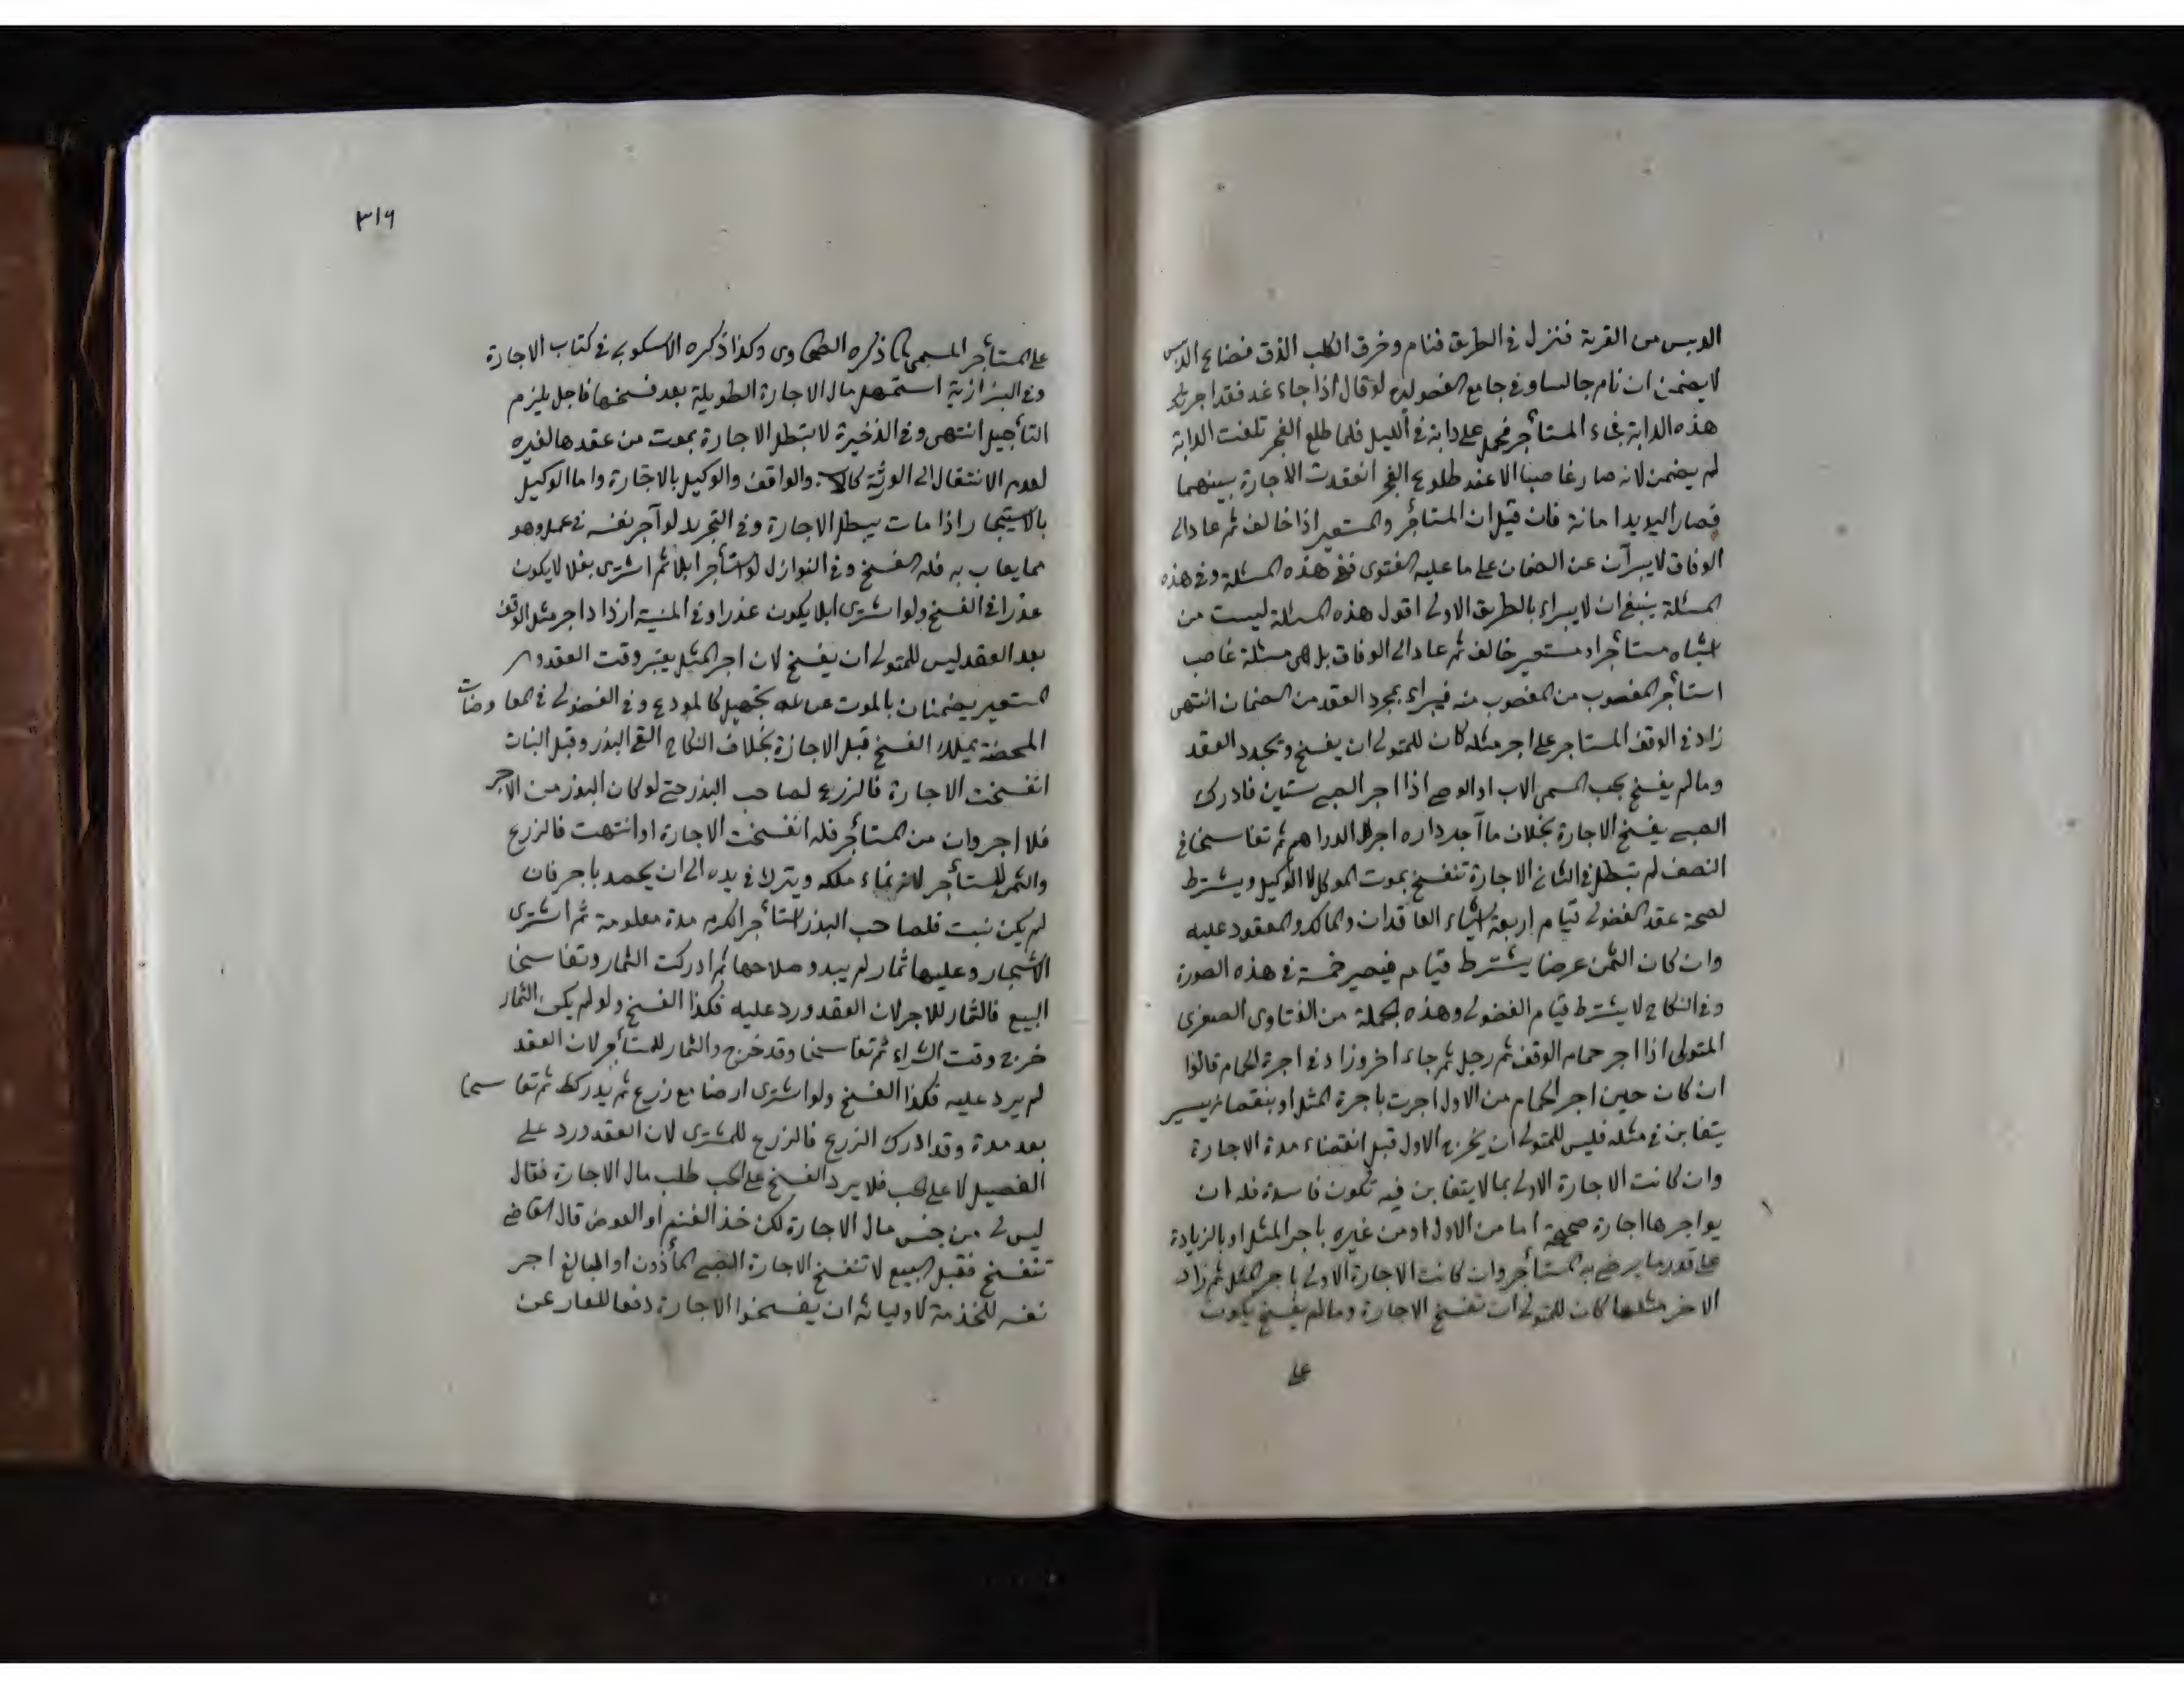 الدبس من القرية فنزل في الطريق فنام وخرق الكلب الذق فضاع الدبس
لا يضمن ان نام جالسا وفي جامع الفصولين لو قال اذا جاء غد فقد اجرتك
هذه الدابة فجاء المستأجر فحمل على دابة في الليل فلما طلع الفجر تلفت الدابة
لم يضمن لانه صار غاصبا الا عند طلوع الفجر انعقدت الاجارة بينهما
فصار اليد يد امانة فان قيل ان المستأجر والمستعير اذا خالف ثم عاد الى
الوفاق لا يبرآن عن الضمان على ما عليه الفتوى ففي هذه المسئلة وفي هذه
المسئلة ينبغي ان لا يبراء بالطريق الاولى اقول هذه المسئلة ليست من
اشباه مستأجر او مستعير خالف ثم عاد الى الوفاق بل هى مسئلة غاصب
استأجر المغصوب من المغصوب منه فيبراء بمجرد العقد من الضمان انتهى
زاد في الوقف المستاجر على اجر مثله كان للمتولى ان يفسخ ويجدد العقد
وما لم يفسخ يجب المسمى الاب او الوصى اذا اجر الصبى سنتين فادرك
الصبى يفسخ الاجارة بخلاف ما آجر داره اجر الدراهم ثم تفاسخا في
النصف لم تبطل في الثانى الاجارة تنفسخ بموت الموكل لا الوكيل ويشترط
لصحة عقد الفضولى قيام اربعة اشياء العاقدان والمالك والمعقود عليه
وان كان الثمن عرضا يشترط قيامه فيصير خمسة في هذه الصورة
وفي النكاح لا يشترط قيام الفضولى وهذه الجملة من الفتاوى الصغرى
المتولى اذا اجر حمام الوقف ثم رجل ثم جاء اخر وزاد في اجرة الحمام قالوا
ان كان حين اجر الحمام من الاول اجرت باجرة المثل او بنقصان يسير
يتغابن في مثله فليس للمتولى ان يخرج الاول قبل انقضاء مدة الاجارة
وان كانت الاجارة الاولى بما لا يتغابن فيه تكون فاسدة فله ان
يواجرها اجارة صحيحة اما من الاول او من غيره باجر المثل او بالزيادة
على قدر ما يرضى به المستأجر وان كانت الاجارة الاولى باجر المثل ثم زاد
الاخر مثلها كان للمتولى ان تفسخ الاجارة وما لم يفسخ يكون
على
٣١٦
على المستأجر المسمى ذكره الطحاوى وكذا ذكره الاسكوبى في كتاب الاجارة
وفي البزازية استمهل مال الاجارة الطويلة بعد فسخها فاجل يلزم
التأجيل انتهى وفي الذخيرة لا تبطل الاجارة بموت من عقدها لغيره
لعدم الانتقال الى الورثة والواقف والوكيل بالاجارة واما الوكيل
بالاستيجار اذا مات يبطل الاجارة وفي التجريد لو آجر نفسه في عمل وهو
مما يعاب به فله الفسخ وفي النوازل لو استأجر ابلا ثم اشترى بغلا لا يكون
عذرا في الفسخ ولو اشترى ابلا يكون عذرا وفي المنية ازداد اجر مثل الوقف
بعد العقد ليس للمتولى ان يفسخ لان اجر المثل يعتبر وقت العقد
المستعير يضمنان بالموت عن تجهيل كالمودع وفي الفضولى في المعاوضات
المحضة يملك الفسخ قبل الاجازة بخلاف النكاح القى البذر وقبل النبات
انفسخت الاجارة فالزرع لصاحب البذر حتى لو كان البذر من الآجر
فلا اجر وان من المستأجر فله انفسخت الاجارة او انتهت فالزرع
والثمر للمستأجر لانه نماء ملكه ويترك في يده الى ان يحصد باجر فان
لم يكن نبت فلصاحب البذر استأجر الكرم مدة معلومة ثم اشترى
الاشجار وعليها ثمار لم يبدو صلاحها ثم ادركت الثمار وتفاسخا
البيع فالثمار للاجر لان العقد ورد عليه فكذا الفسخ ولو لم يكن الثمار
خرج وقت الشراء ثم تفاسخا وقد خرج والثمار للمستأجر لان العقد
لم يرد عليه فكذا الفسخ ولو اشترى ارضا مع زرع ثم تفاسخا
بعد مدة وقد ادرك الزرع فالزرع للمشترى لان العقد ورد على
الفصيل لا على الحب فلا يرد الفسخ على الحب طلب مال الاجارة فقال
ليس لى من جنس مال الاجارة لكن خذ الغنم او العوض قال القاضى
تنفسخ فقبل البيع لا تنفسخ الاجارة الصبى المأذون او البالغ اجر
نفسه للخدمة لاوليائه ان يفسخوا الاجارة دفعا للعار عن